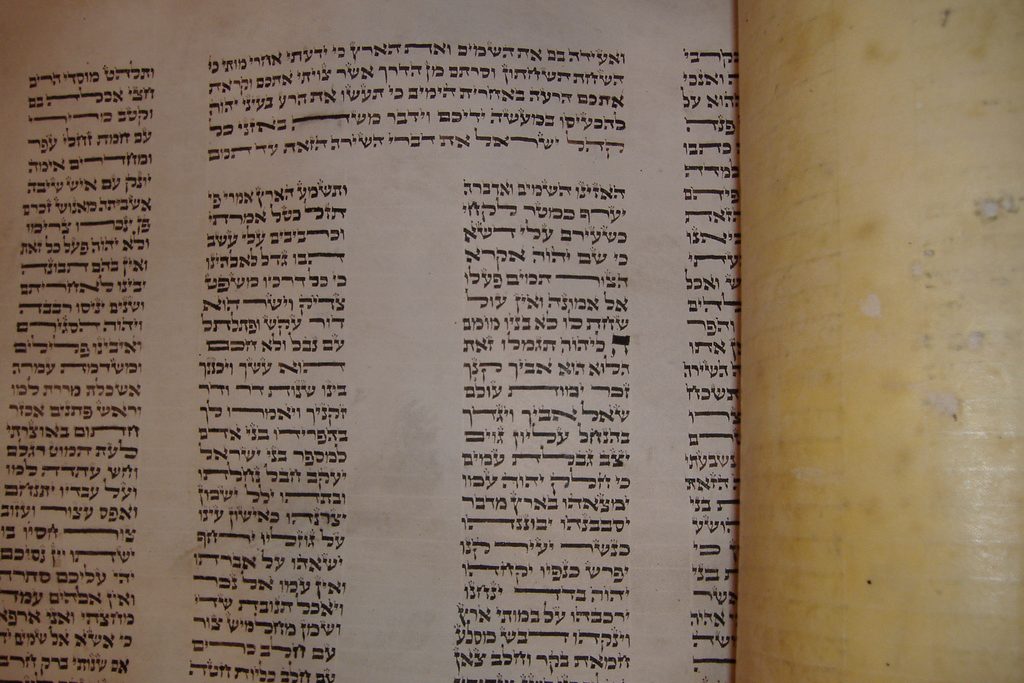 ואעידה בם את השמים ואת הארץ כי ידעתי אחרי מותי כי
השחת תשחתון וסרתם מן הדרך אשר צויתי אתכם וקראת
אתכם הרעה באחרית הימים כי תעשו את הרע בעיני יהוה
להכעיסו במעשה ידיכם וידבר משה באזני כל
קהל ישראל את דברי השירה הזאת עד תמם
האזינו השמים ואדברה ותשמע הארץ אמרי פי
יערף כמטר לקחי תזל כטל אמרתי
כשעירם עלי דשא וכרביבים עלי עשב
כי שם יהוה אקרא הבו גדל לאלהינו
הצור תמים פעלו כי כל דרכיו משפט
אל אמונה ואין עול צדיק וישר הוא
שחת לו לא בניו מומם דור עקש ופתלתל
ה ליהוה תגמלו זאת עם נבל ולא חכם
הלוא הוא אביך קנך הוא עשך ויכננך
זכר ימות עולם בינו שנות דר ודר
שאל אביך ויגדך זקניך ויאמרו לך
בהנחל עליון גוים בהפרידו בני אדם
יצב גבלת עמים למספר בני ישראל
כי חלק יהוה עמו יעקב חבל נחלתו
ימצאהו בארץ מדבר ובתהו ילל ישמן
יסבבנהו יבוננהו יצרנהו כאישון עינו
כנשר יעיר קנו על גוזליו ירחף
יפרש כנפיו יקחהו ישאהו על אברתו
יהוה בדד ינחנו ואין עמו אל נכר
ירכבהו על במותי ארץ ויאכל תנובת שדי
וינקהו דבש מסלע ושמן מחלמיש צור
חמאת בקר וחלב צאן עם חלב כרים
עם חלב כליות חטה
ותלהט מוסדי הרים
חצי אכלה בם
וקטב מרירי
עם חמת זחלי עפר
ומחדרים אימה
יונק עם איש שיבה
אשביתה מאנוש זכרם
פן ינכרו צרימו
ולא יהוה פעל כל זאת
ואין בהם תבונה
יבינו לאחריתם
ושנים יניסו רבבה
ויהוה הסגירם
ואיבינו פלילים
ומשדמת עמרה
אשכלת מררת למו
וראש פתנים אכזר
חתום באוצרתי
לעת תמוט רגלם
וחש עתדת למו
ועל עבדיו יתנחם
ואפס עצור ועזוב
צור חסיו בו
ישתו יין נסיכם
יהי עליכם סתרה
ואין אלהים עמדי
מחצתי ואני ארפא
כי אשא אל שמים
אם שנותי ברק חרבי